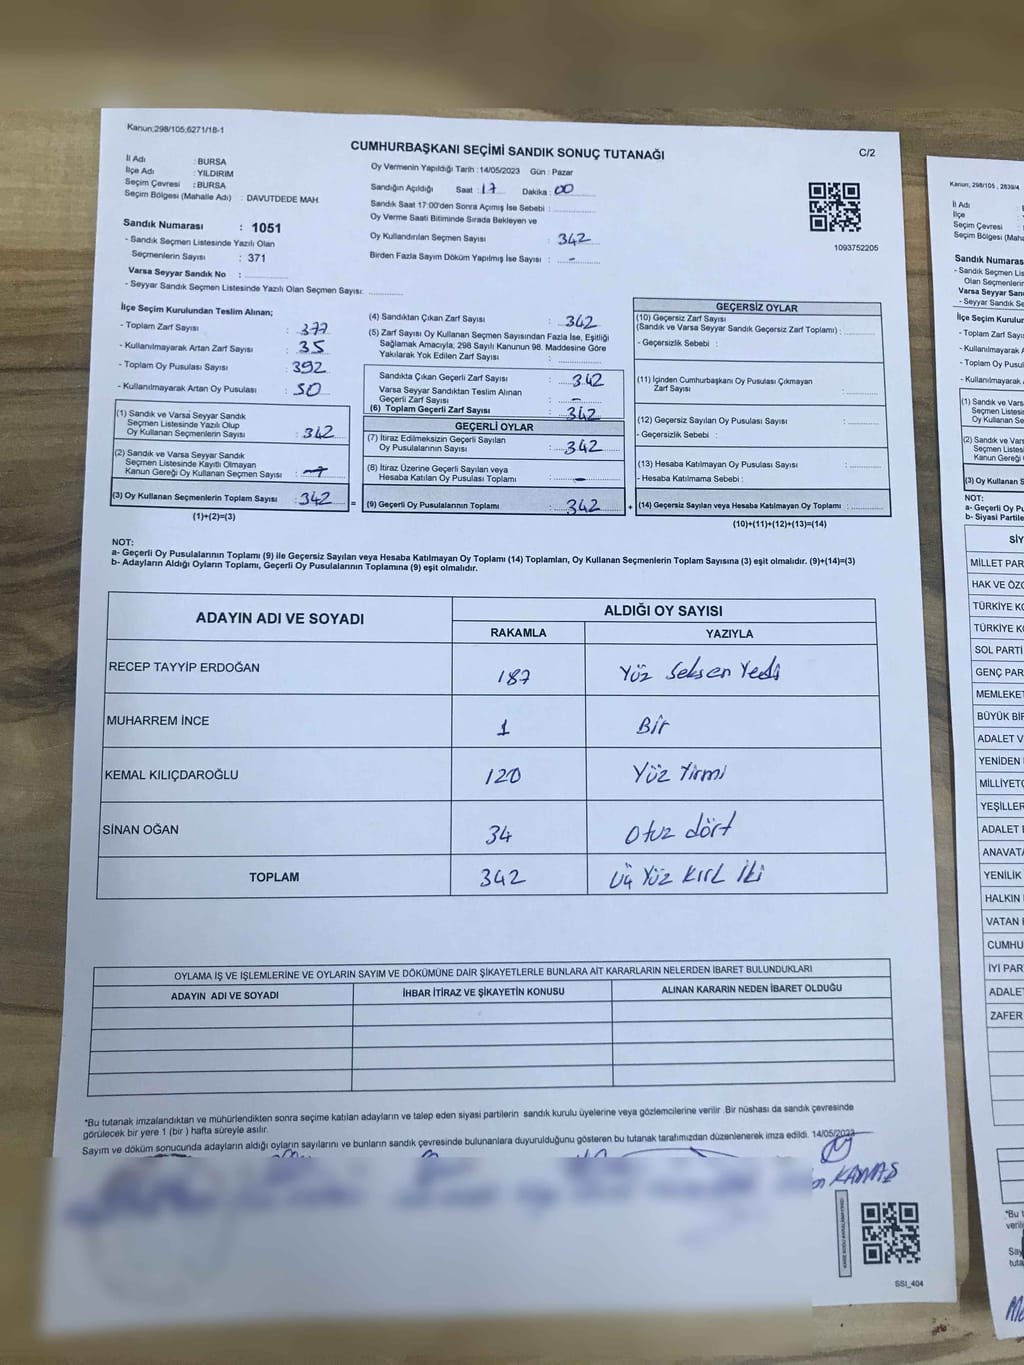 Kanun;298/105,6271/18-1
CUMHURBAŞKANI SEÇİMİ SANDIK SONUÇ TUTANAĞI
C/2
İl Adı : BURSA
İlçe Adı : YILDIRIM
Seçim Çevresi : BURSA
Seçim Bölgesi (Mahalle Adı) : DAVUTDEDE MAH.
Sandık Numarası : 1051
- Sandık Seçmen Listesinde Yazılı Olan
Seçmenlerin Sayısı : 371
Varsa Seyyar Sandık No :
- Seyyar Sandık Seçmen Listesinde Yazılı Olan Seçmen Sayısı:
Oy Vermenin Yapıldığı Tarih : 14/05/2023 Gün : Pazar
Sandığın Açıldığı Saat : 17 Dakika : 00
Sandık Saat 17:00'den Sonra Açımış İse Sebebi :
Oy Verme Saati Bitiminde Sırada Bekleyen ve
Oy Kullandırılan Seçmen Sayısı : 342
Birden Fazla Sayım Döküm Yapılmış İse Sayısı : -
1093752205
İlçe Seçim Kurulundan Teslim Alınan;
- Toplam Zarf Sayısı : 377
- Kullanılmayarak Artan Zarf Sayısı : 35
- Toplam Oy Pusulası Sayısı : 392
- Kullanılmayarak Artan Oy Pusulası : 50
(1) Sandık ve Varsa Seyyar Sandık
Seçmen Listesinde Yazılı Olup
Oy Kullanan Seçmenlerin Sayısı : 342
(2) Sandık ve Varsa Seyyar Sandık
Seçmen Listesinde Kayıtlı Olmayan
Kanun Gereği Oy Kullanan Seçmen Sayısı :
(3) Oy Kullanan Seçmenlerin Toplam Sayısı : 342
(1)+(2)=(3)
(4) Sandıktan Çıkan Zarf Sayısı : 342
(5) Zarf Sayısı Oy Kullanan Seçmen Sayısından Fazla İse, Eşitliği
Sağlamak Amacıyla, 298 Sayılı Kanunun 98. Maddesine Göre
Yakılarak Yok Edilen Zarf Sayısı :
Sandıkta Çıkan Geçerli Zarf Sayısı : 342
Varsa Seyyar Sandıktan Teslim Alınan
Geçerli Zarf Sayısı : -
(6) Toplam Geçerli Zarf Sayısı : 342
GEÇERLİ OYLAR
(7) İtiraz Edilmeksizin Geçerli Sayılan
Oy Pusulalarının Sayısı : 342
(8) İtiraz Üzerine Geçerli Sayılan veya
Hesaba Katılan Oy Pusulası Toplamı : -
= (9) Geçerli Oy Pusulalarının Toplamı : 342
GEÇERSİZ OYLAR
(10) Geçersiz Zarf Sayısı
(Sandık ve Varsa Seyyar Sandık Geçersiz Zarf Toplamı) :
- Geçersizlik Sebebi :
(11) İçinden Cumhurbaşkanı Oy Pusulası Çıkmayan
Zarf Sayısı :
(12) Geçersiz Sayılan Oy Pusulası Sayısı :
- Geçersizlik Sebebi :
(13) Hesaba Katılmayan Oy Pusulası Sayısı :
- Hesaba Katılmama Sebebi :
+ (14) Geçersiz Sayılan veya Hesaba Katılmayan Oy Toplamı :
(10)+(11)+(12)+(13)=(14)
NOT:
a- Geçerli Oy Pusulalarının Toplamı (9) ile Geçersiz Sayılan veya Hesaba Katılmayan Oy Toplamı (14) Toplamları, Oy Kullanan Seçmenlerin Toplam Sayısına (3) eşit olmalıdır. (9)+(14)=(3)
b- Adayların Aldığı Oyların Toplamı, Geçerli Oy Pusulalarının Toplamına (9) eşit olmalıdır.
ADAYIN ADI VE SOYADI
ALDIĞI OY SAYISI
RAKAMLA YAZIYLA
RECEP TAYYİP ERDOĞAN 187 Yüz Seksen Yedi
MUHARREM İNCE 1 Bir
KEMAL KILIÇDAROĞLU 120 Yüz Yirmi
SİNAN OĞAN 34 Otuz dört
TOPLAM 342 Üç Yüz Kırk İki
OYLAMA İŞ VE İŞLEMLERİNE VE OYLARIN SAYIM VE DÖKÜMÜNE DAİR ŞİKAYETLERLE BUNLARA AİT KARARLARIN NELERDEN İBARET BULUNDUKLARI
ADAYIN ADI VE SOYADI İHBAR İTİRAZ VE ŞİKAYETİN KONUSU ALINAN KARARIN NEDEN İBARET OLDUĞU
*Bu tutanak imzalandıktan ve mühürlendikten sonra seçime katılan adayların ve talep eden siyasi partilerin sandık kurulu üyelerine veya gözlemcilerine verilir .Bir nüshası da sandık çevresinde
görülecek bir yere 1 (bir ) hafta süreyle asılır.
Sayım ve döküm sonucunda adayların aldığı oyların sayılarını ve bunların sandık çevresinde bulunanlara duyurulduğunu gösteren bu tutanak tarafımızdan düzenlenerek imza edildi. 14/05/2023
SSI_404
Kanun, 298/105 , 2839/4
İl Adı
İlçe
Seçim Çevresi
Seçim Bölgesi (Maha
Sandık Numaras
- Sandık Seçmen Lis
Olan Seçmenlerin
Varsa Seyyar San
- Seyyar Sandık Se
İlçe Seçim Kurulur
- Toplam Zarf Sayı
- Kullanılmayarak
- Toplam Oy Pusu
- Kullanılmayarak
(1) Sandık ve Vars
Seçmen Listesi
Oy Kullanan Se
(2) Sandık ve Var
Seçmen Listes
Kanun Gereği O
(3) Oy Kullanan S
NOT:
a- Geçerli Oy Pu
b- Siyasi Partile
SİY
MİLLET PAR
HAK VE ÖZG
TÜRKİYE KO
TÜRKİYE KO
SOL PARTİ
GENÇ PAR
MEMLEKET
BÜYÜK BİR
ADALET V
YENİDEN
MİLLİYETÇ
YEŞİLLER
ADALET
ANAVATA
YENİLİK
HALKIN
VATAN
CUMHU
İYİ PAR
ADALET
ZAFER
*Bu t
veril
Say
tuta